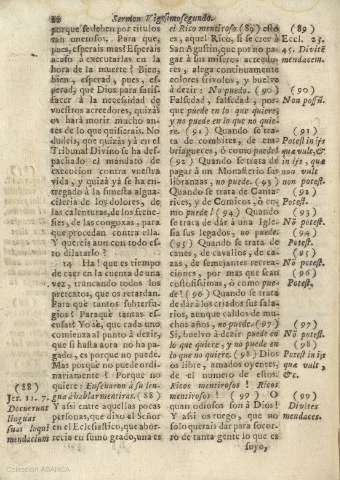 88 Sermon Vigesimosegundo.
porque se deben por titulos
tan onerosos. Pero que,
pues, esperais mas? Esperais
acaso à executarlas en la
hora de la muerte? Bien,
bien, esperad, pues, es-
perad, que Dios para satisfa-
cer à la necesidad de
vuestros acreedores, quizás
os hará morir mucho an-
tes de lo que quisierais. No
dudeis, que quizás yà en el
Tribunal Divino se ha des-
pachado el mandato de
execucion contra vuestra
vida, y quizá yà se ha en-
tregado à la funesta algua-
cileria de los dolores, de
las calenturas, de los frene-
sies, de las congoxas, para
que procedan contra ella.
Y quereis aun con todo es-
to dilatarlo?
14 Ha! que es tiempo
de caer en la cuenta de una
vez, trancando todos los
pretextos, que os retardan.
Para què tantos subterfu-
gios? Para què tantas es-
cusas? Yo sè, que cada uno
comienza al punto à decir,
que si hasta aora no ha pa-
gado, es porque no puede.
Mas porque no puede ordi-
nariamente? Porque no
quiere: Enseñaron à su len-
gua à hablar mentiras. (88)
Y assi entre aquellas pocas
personas, que dixo el Señor
en el Eclesiastico, que abor-
recia en sumo grado, una es
(88)
Jer. 11. 7.
Docuerunt
linguas
suas loqui
mendacium
el Rico mentiroso. (89) esto
es, aqui: Rico, si se cree à
San Agustin, que por no pa-
gar à sus miseros acreedo-
res, alega continuamente
colores frivolos, y buelve
à decir: No puedo. (90)
Falsedad, falsedad, por-
que puede en lo que quiere,
y no puede en lo que no quie-
re. (91) Quando se tra-
ta de combites, de em-
briagueces, ò como puedes!
(92) Quando se trata de
pagar à un Monasterio sus
libranzas, no puede. (93)
Quando se trata de Canta-
rices, y de Comicos, ò co-
mo puede! (94) Quando
se trata de dár à una Iglesia
sus legados, no puede.
(95) Quando se trata de
canes, de cavallos, de ca-
zas, de semejantes recrea-
ciones, por mas que sean
costosissimas, ò como pue-
de! (96) Quando se trata
de dár à los criados sus sala-
rios, aunque caidos de mu-
chos años, no puede. (97)
Sí, buelvo à decir puede en
lo que quiere, y no puede en
lo que no quiere. (98) Dios
os libre, amados oyentes,
de el numero de estos.
Ricos mentirosos! Ricos
mentirosos! (99) O
quan odiosos son à Dios!
Y assi os ruego, que no
solo querais dár para socor-
ro de tanta gente lo que es
suyo,
(89)
Eccl. 25.
45. Divitē
mendacem.
(90)
Non possū.
(91)
Potest in ijs
quæ vult, &
in ijs, quæ
non vult
non potest.
(92)
Potest.
(93)
Nō potest.
(94)
Potest.
(95)
Nō potest.
(96)
Potest,
(97)
Nō potest.
(98)
Potest in ijs
quæ vult,
&c.
(99)
Divites
mendaces.
Colección ABANCA